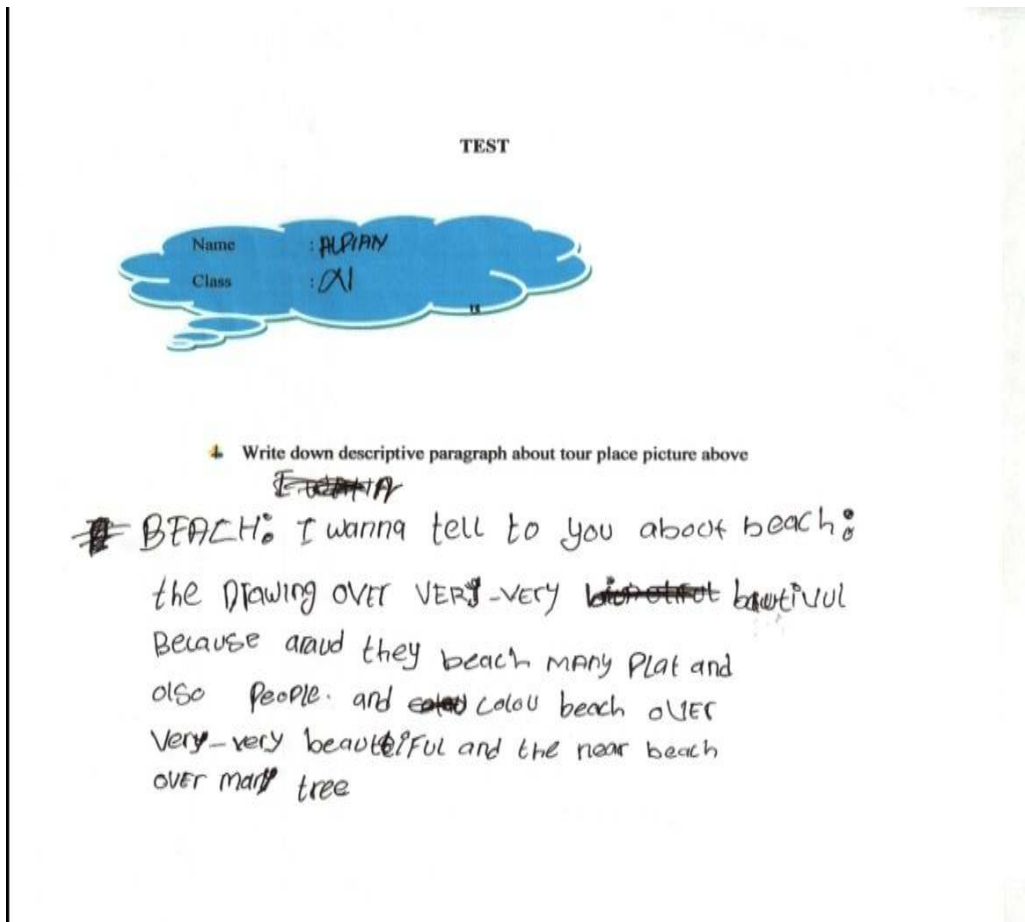 TEST
Name : ALPIAN
Class : XI
Write down descriptive paragraph about tour place picture above
BEACH: I wanna tell to you about beach:
the Drawing OVER VERY-VERY bawtiVul
Because araud they beach MANy Plat and
olso People. and colou beach OVER
Very-very beautiFul and the near beach
OVEr many tree